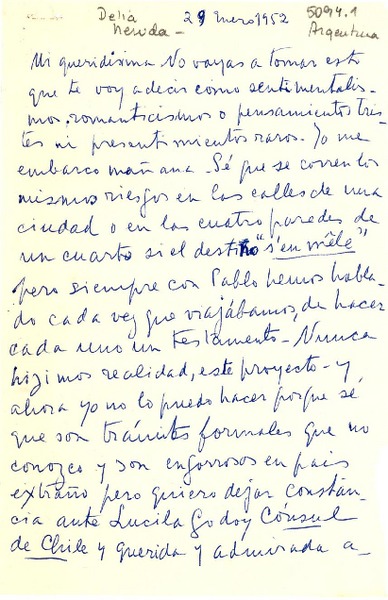 Delia 29 Enero 1952 5094.1
Nervda – Argentina
Mi queridísima No vayas a tomar esto
que te voy a decir como sentimentalis-
mos, romanticismos o pensamientos tris-
tes ni presentimientos raros. Yo me
embarco mañana. Sé que se corren los
mismos riesgos en las calles de una
ciudad o en las cuatro paredes de
un cuarto si el destino "s'en mêle"
pero siempre con Pablo hemos habla-
do cada vez que viajábamos, de hacer
cada uno un testamento – Nunca
hizimos realidad, este proyecto – y
ahora yo no lo puedo hacer porque sé
que son trámites formales que no
conozco y son engorrosos en pais
extraño pero quiero dejar constán-
cia ante Lucila Godoy Cónsul
de Chile y querida y admirada a-